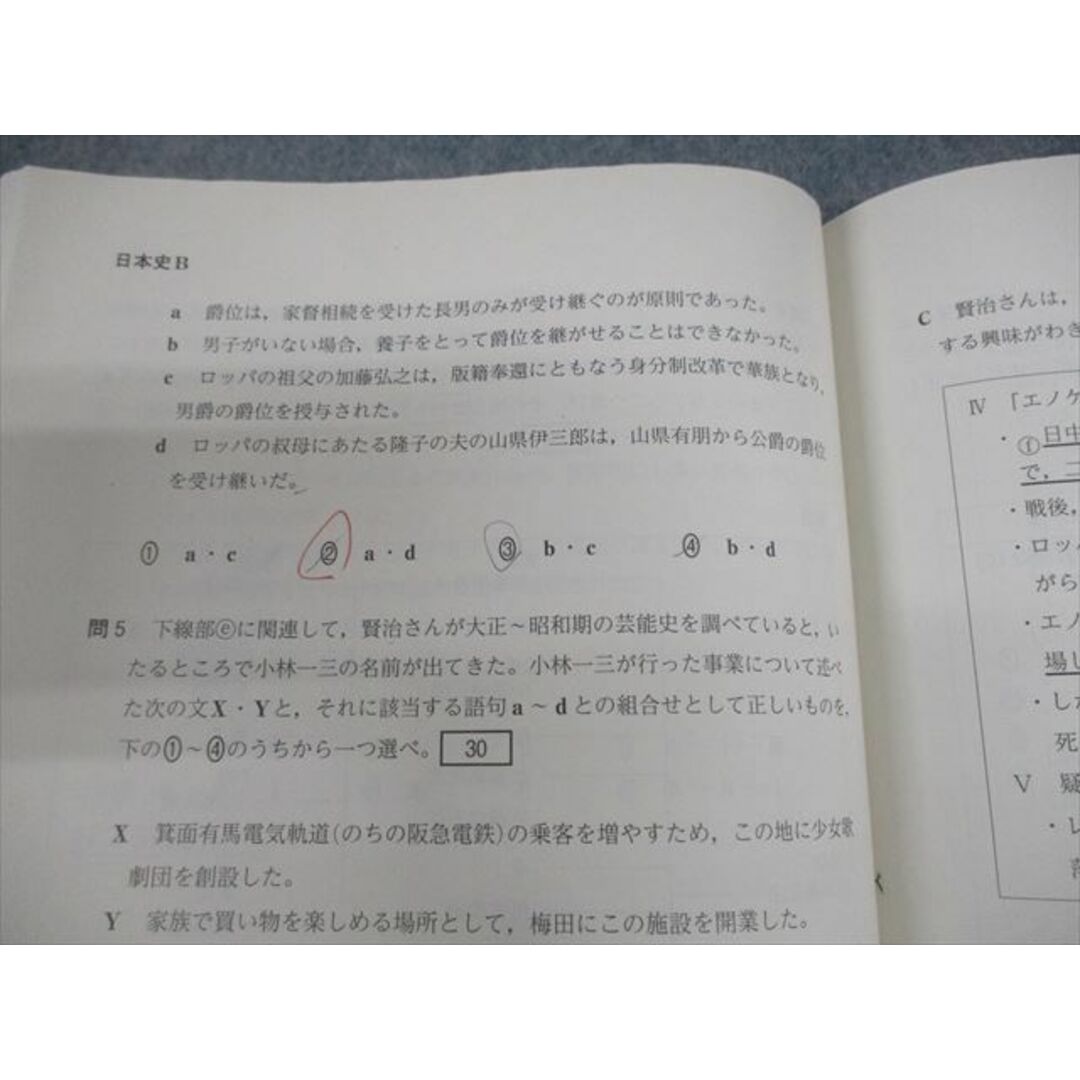 日本史B
a 爵位は，家督相続を受けた長男のみが受け継ぐのが原則であった。
b 男子がいない場合，養子をとって爵位を継がせることはできなかった。
c ロッパの祖父の加藤弘之は，版籍奉還にともなう身分制改革で華族となり，
男爵の爵位を授与された。
d ロッパの叔母にあたる隆子の夫の山県伊三郎は，山県有朋から公爵の爵位
を受け継いだ。
① a・c ② a・d ③ b・c ④ b・d
問5 下線部ⓔに関連して，賢治さんが大正～昭和期の芸能史を調べていると，い
たるところで小林一三の名前が出てきた。小林一三が行った事業について述べ
た次の文X・Yと，それに該当する語句a～dとの組合せとして正しいものを，
下の①～④のうちから一つ選べ。 30
X 箕面有馬電気軌道(のちの阪急電鉄)の乗客を増やすため，この地に少女歌
劇団を創設した。
Y 家族で買い物を楽しめる場所として，梅田にこの施設を開業した。
C 賢治さんは，
する興味がわき
Ⅳ 「エノケ
・①日中
で，二
・戦後，
・ロッパ
がら
・エノ
場し
・した
死
Ⅴ 疑
・レ